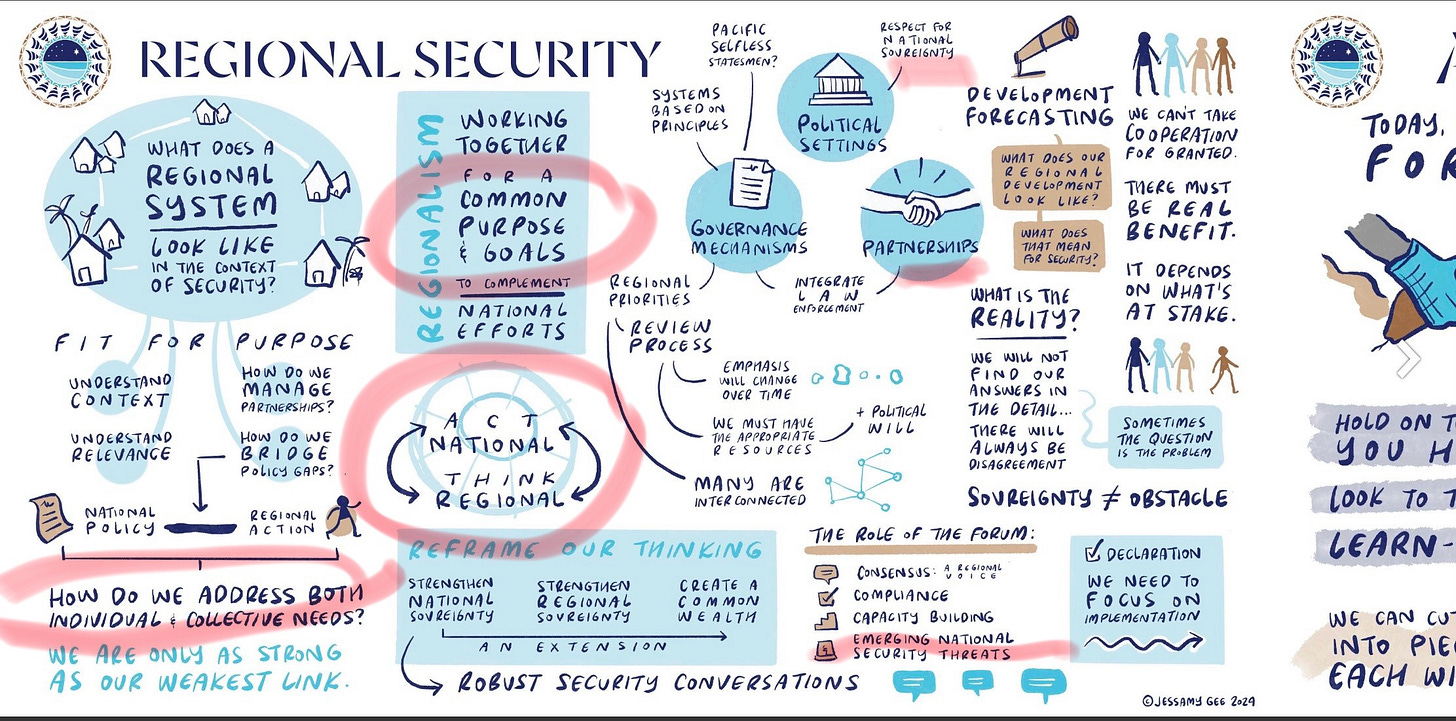 REGIONAL SECURITY
WHAT DOES A
REGIONAL
SYSTEM
LOOK LIKE
IN THE CONTEXT
OF SECURITY?
FIT FOR PURPOSE
UNDERSTAND
CONTEXT
UNDERSTAND
RELEVANCE
HOW DO WE
MANAGE
PARTNERSHIPS?
HOW DO WE
BRIDGE
POLICY GAPS?
NATIONAL
POLICY
REGIONAL
ACTION
HOW DO WE ADDRESS BOTH
INDIVIDUAL & COLLECTIVE NEEDS?
WE ARE ONLY AS STRONG
AS OUR WEAKEST LINK.
REGIONALISM
WORKING
TOGETHER
FOR A
COMMON
PURPOSE
& GOALS
TO COMPLEMENT
NATIONAL
EFFORTS
ACT
NATIONAL
THINK
REGIONAL
REFRAME OUR THINKING
STRENGTHEN
NATIONAL
SOVREIGNTY
STRENGTHEN
REGIONAL
SOVREIGNTY
CREATE A
COMMON
WEALTH
AN EXTENSION
ROBUST SECURITY CONVERSATIONS
PACIFIC
SELFLESS
STATESMEN?
SYSTEMS
BASED ON
PRINCIPLES
RESPECT FOR
NATIONAL
SOVREIGNTY
POLITICAL
SETTINGS
GOVERNANCE
MECHANISMS
PARTNERSHIPS
REGIONAL
PRIORITIES
INTEGRATE
LAW
ENFORCEMENT
REVIEW
PROCESS
EMPHASIS
WILL CHANGE
OVER TIME
WE MUST HAVE
THE APPROPRIATE
RESOURCES
+ POLITICAL
WILL
MANY ARE
INTERCONNECTED
DEVELOPMENT
FORECASTING
WHAT DOES OUR
REGIONAL
DEVELOPMENT
LOOK LIKE?
WHAT DOES
THAT MEAN
FOR SECURITY?
WHAT IS THE
REALITY?
WE WILL NOT
FIND OUR
ANSWERS IN
THE DETAIL...
THERE WILL
ALWAYS BE
DISAGREEMENT
WE CAN'T TAKE
COOPERATION
FOR GRANTED.
THERE MUST
BE REAL
BENEFIT.
IT DEPENDS
ON WHAT'S
AT STAKE.
SOMETIMES
THE QUESTION
IS THE PROBLEM
SOVREIGNTY ≠ OBSTACLE
THE ROLE OF THE FORUM:
CONSENSUS: A REGIONAL
VOICE
COMPLIANCE
CAPACITY BUILDING
EMERGING NATIONAL
SECURITY THREATS
DECLARATION
WE NEED TO
FOCUS ON
IMPLEMENTATION
©JESSAMY GEE 2024
TODAY,
HOLD ON
LOOK TO
LEARN-
WE CAN
INTO
EACH